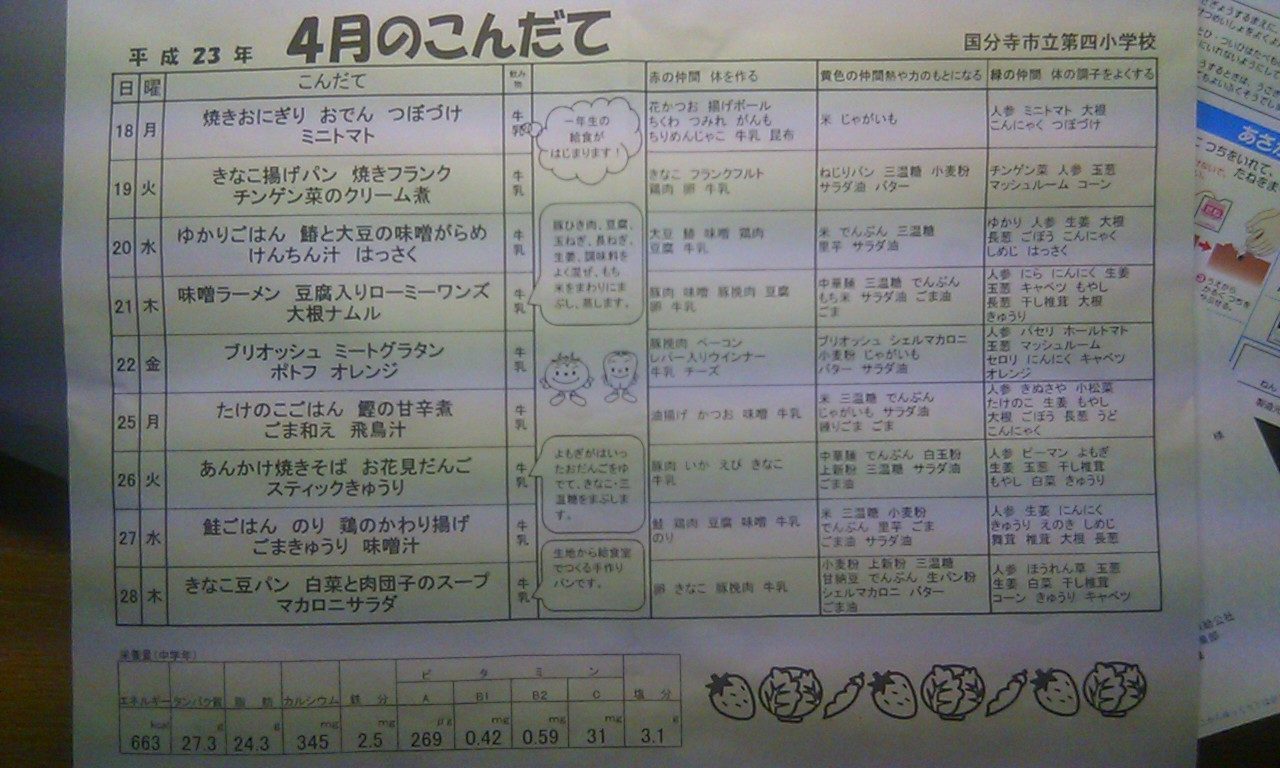 平成 23 年 4月のこんだて 国分寺市立第四小学校
日 曜 こんだて 飲み物 赤の仲間 体を作る 黄色の仲間熱や力のもとになる 緑の仲間 体の調子をよくする
18 月
焼きおにぎり おでん つぼづけ
ミニトマト
牛乳
一年生の
給食が
はじまります!
花かつお 揚げボール
ちくわ つみれ がんも
ちりめんじゃこ 牛乳 昆布
米 じゃがいも
人参 ミニトマト 大根
こんにゃく つぼづけ
19 火
きなこ揚げパン 焼きフランク
チンゲン菜のクリーム煮
牛乳
きなこ フランクフルト
鶏肉 卵 牛乳
ねじりパン 三温糖 小麦粉
サラダ油 バター
チンゲン菜 人参 玉葱
マッシュルーム コーン
20 水
ゆかりごはん 鰆と大豆の味噌がらめ
けんちん汁 はっさく
牛乳
大豆 鰆 味噌 鶏肉
豆腐 牛乳
米 でんぷん 三温糖
里芋 サラダ油
ゆかり 人参 生姜 大根
長葱 ごぼう こんにゃく
しめじ はっさく
21 木
味噌ラーメン 豆腐入りローミーワンズ
大根ナムル
牛乳
豚ひき肉、豆腐、
玉ねぎ、長ねぎ、
生姜、調味料を
よく混ぜ、もち
米をまわりにま
ぶし、蒸します。
豚肉 味噌 豚挽肉 豆腐
卵 牛乳
中華麺 三温糖 でんぷん
もち米 サラダ油 ごま油
ごま
人参 にら にんにく 生姜
玉葱 キャベツ もやし
長葱 干し椎茸 大根
きゅうり
22 金
ブリオッシュ ミートグラタン
ポトフ オレンジ
牛乳
豚挽肉 ベーコン
レバー入りウインナー
牛乳 チーズ
ブリオッシュ シェルマカロニ
小麦粉 じゃがいも
バター サラダ油
人参 パセリ ホールトマト
玉葱 マッシュルーム
セロリ にんにく キャベツ
オレンジ
25 月
たけのこごはん 鰹の甘辛煮
ごま和え 飛鳥汁
牛乳
油揚げ かつお 味噌 牛乳
米 三温糖 でんぷん
じゃがいも サラダ油
練りごま ごま
人参 きぬさや 小松菜
たけのこ 生姜 もやし
大根 ごぼう 長葱 うど
こんにゃく
26 火
あんかけ焼きそば お花見だんご
スティックきゅうり
牛乳
よもぎがはいっ
たおだんごをゆ
でて、きなこ・三
温糖をまぶしま
す。
豚肉 いか えび きなこ
牛乳
中華麺 でんぷん 白玉粉
上新粉 三温糖 サラダ油
ごま油
人参 ピーマン よもぎ
生姜 玉葱 干し椎茸
もやし 白菜 きゅうり
27 水
鮭ごはん のり 鶏のかわり揚げ
ごまきゅうり 味噌汁
牛乳
鮭 鶏肉 豆腐 味噌 牛乳
のり
米 三温糖 小麦粉
でんぷん 里芋 ごま
ごま油 サラダ油
人参 生姜 にんにく
きゅうり えのき しめじ
舞茸 椎茸 大根 長葱
28 木
きなこ豆パン 白菜と肉団子のスープ
マカロニサラダ
牛乳
生地から給食室
でつくる手作り
パンです。
卵 きなこ 豚挽肉 牛乳
小麦粉 上新粉 三温糖
甘納豆 でんぷん 生パン粉
シェルマカロニ バター
ごま油
人参 ほうれん草 玉葱
生姜 白菜 干し椎茸
コーン きゅうり キャベツ
栄養量(中学年)
ビタミン
エネルギー タンパク質 脂肪 カルシウム 鉄分 A B1 B2 C 塩分
kcal g g mg mg μg mg mg mg g
663 27.3 24.3 345 2.5 269 0.42 0.59 31 3.1
あさが
つちをいれて、
たねをま
様